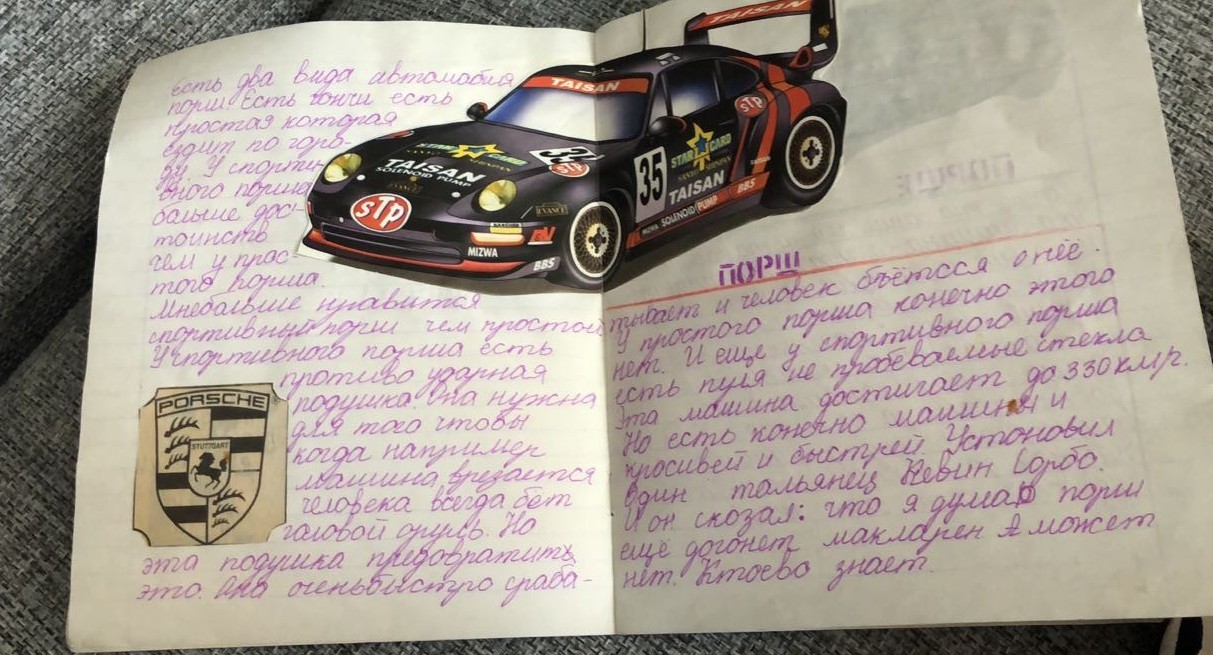 Есть два вида автомобля
порш. Есть гончи есть
простая которая
ездит по горо-
ду. У спорти-
вного порша
больше дос-
тоинств
чем у прос-
того порша.
Мнебольше нравится
спортивный порш чем простой
У спортивного порша есть
противо ударная
подушка. Она нужна
для того чтобы
когда например
машина врезается
человека всегда бет
галовой оруль. Но
эта подушка предовратить
это. Она оченьбыстро сраба-
PORSCHE
STUTTGART
TAISAN
TAISAN
STAR CARD
TAISAN
SOLENOID PUMP
ADVANCE
STP
35
STP
STP
35
STAR CARD
TAISAN
SOLENOID PUMP
BBS
MIZWA
MIZWA
BBS
ПОРШ
тывает и человек бьётсся о неё.
У простого порша конечно этого
нет. И еще у спортивного порша
есть пуля не пробеваемые стекла
Эта машина достигает до 330 км/р.
Но есть конечно машины и
красивей и быстрей. Устоновил
один тальянец Кевин Сорбо.
И он скозал: что я думаю порш
ещё догонет макларен А может
нет. Ктоево знает.